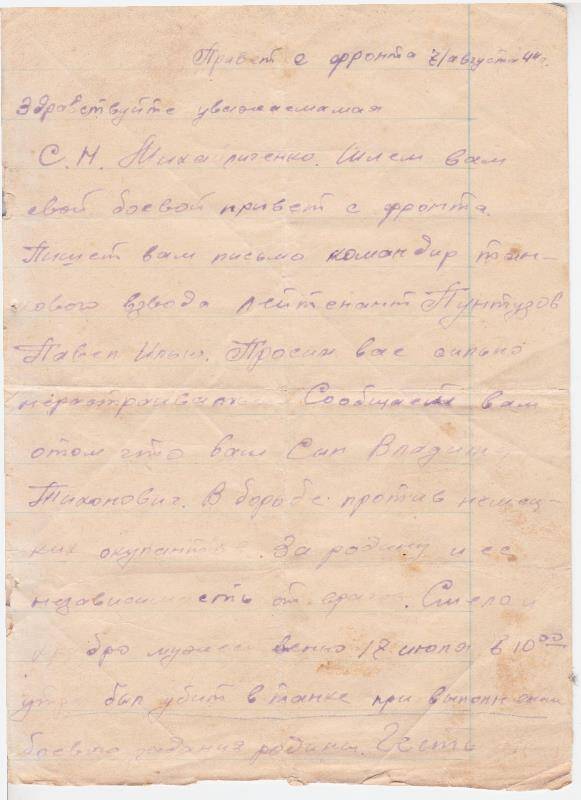 Привет с фронта 7/августа 44г.
Здравствуйте уважаемамая
С.Н. Тихайличенко. Шлем вам
свой боевой привет с фронта.
Пишет вам письмо командир тан-
кового взвода лейтенант Пунтузов
Павел Ильич. Просим вас сильно
нерастраивать Сообщаем вам
отом что ваш Сын Владим
Тихонович. В борьбе против немец-
ких окупантов. За родину и ее
независимость от врагов. Смело и
храбро мужественно 17 июля в 10 00
утра был убит в танке при выполнении
боевого задания родины. Честь